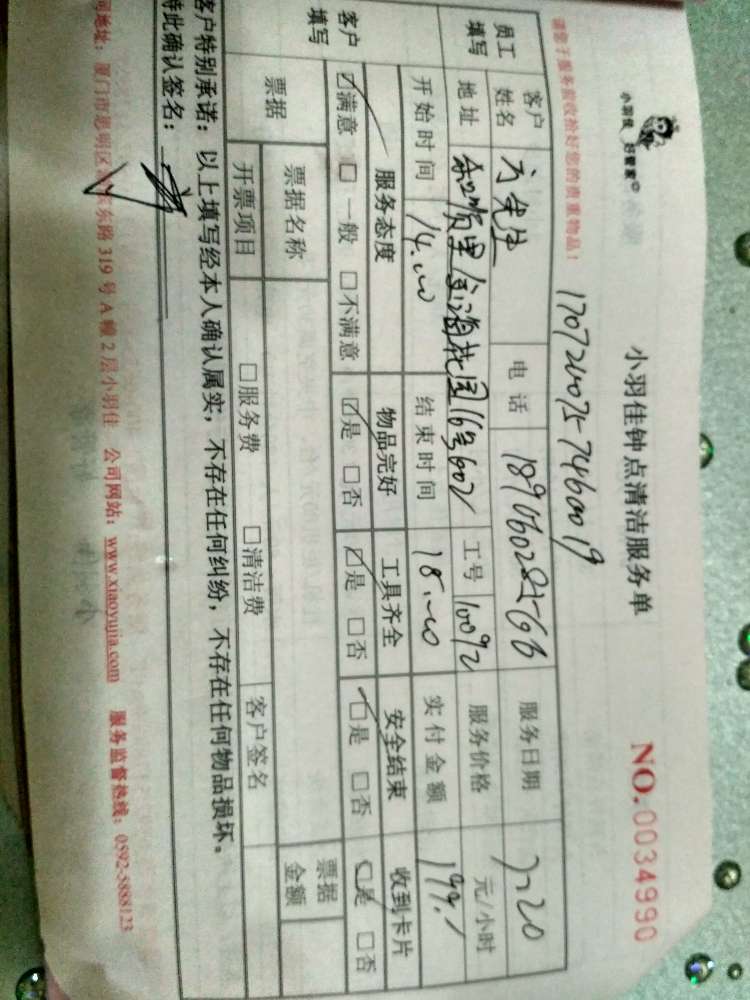 小羽佳 好管家
小羽佳钟点清洁服务单
NO.0034990
请您于服务前收拾好您的贵重物品!
员工填写
客户姓名
方先生
电话
服务日期
7.20
地址
金海花园16号602
工号
10092
服务价格
元/小时
开始时间
14.00
结束时间
18.00
实付金额
客户填写
服务态度
物品完好
工具齐全
安全结束
收到卡片
☑满意 □一般 □不满意
☑是 □否
☑是 □否
☑是 □否
☑是 □否
票据
票据名称
票据金额
开票项目
□服务费 □清洁费
客户签名
客户特别承诺:以上填写经本人确认属实,不存在任何纠纷,不存在任何物品损坏。
特此确认签名:
司地址:厦门市思明区 东路319号A幢2层小羽佳 公司网站:www.xiaoyujia.com 服务监督热线:0592-5888123